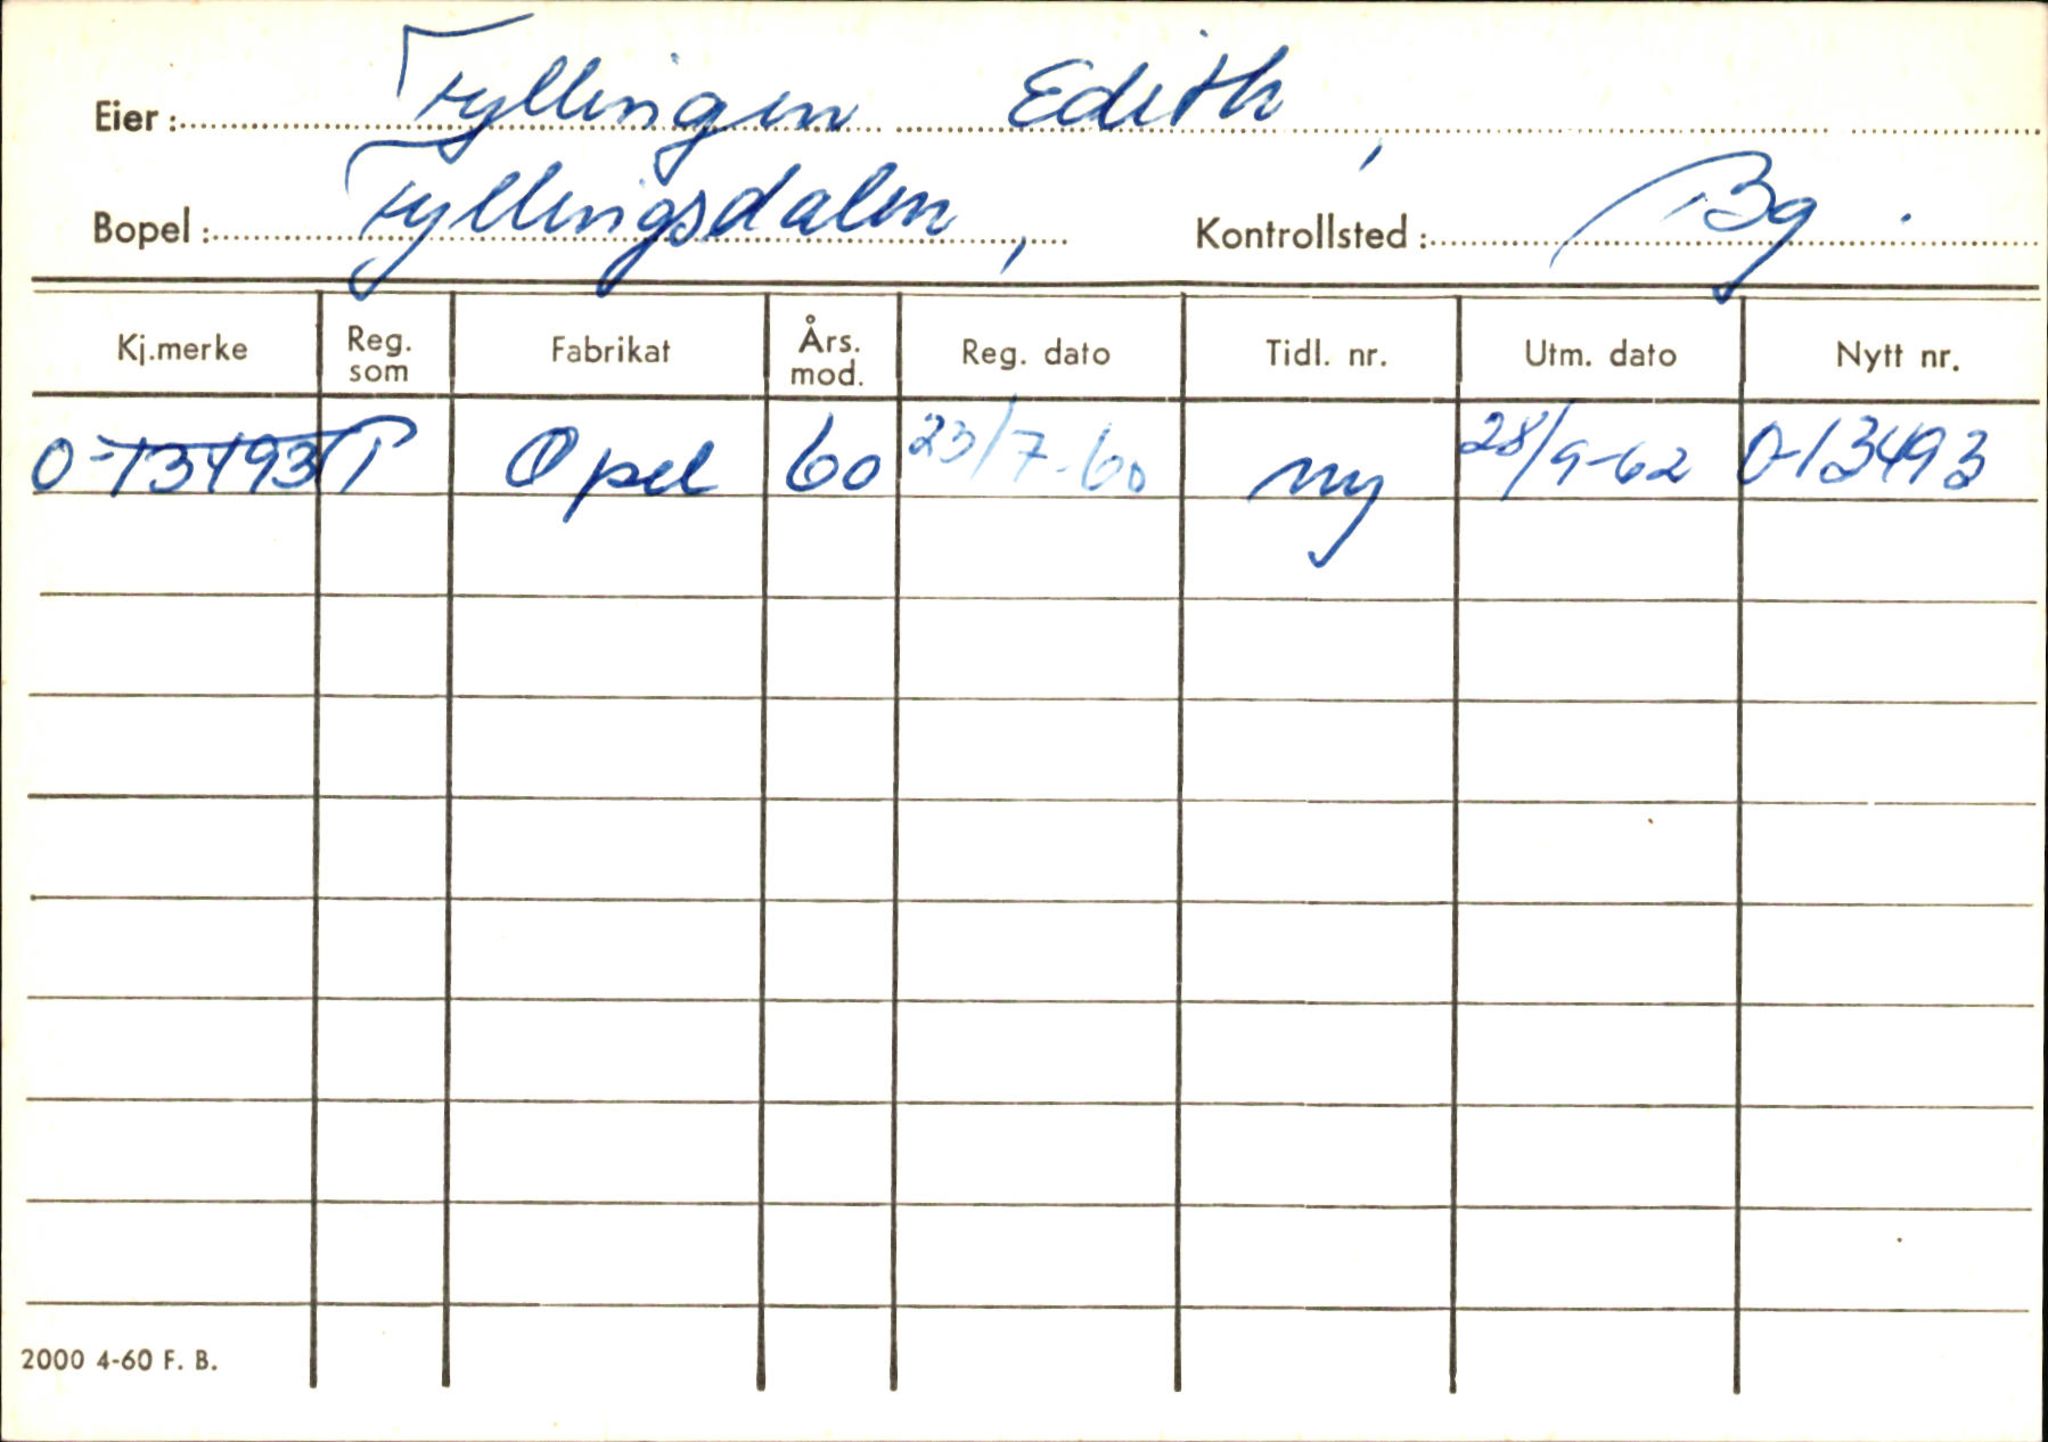 Eier: Fyllingen Edith,
Bopel: Fyllingsdalen, Kontrollsted: Bg.
Kj.merke Reg. som Fabrikat Års. mod. Reg. dato Tidl. nr. Utm. dato Nytt nr.
O-13493 P Opel 60 23/7-60 ny 28/9-62 O-13493
2000 4-60 F. B.